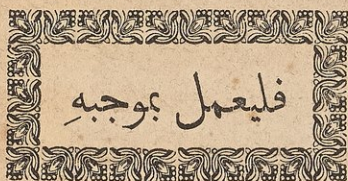 فليعمل بموجبهِ